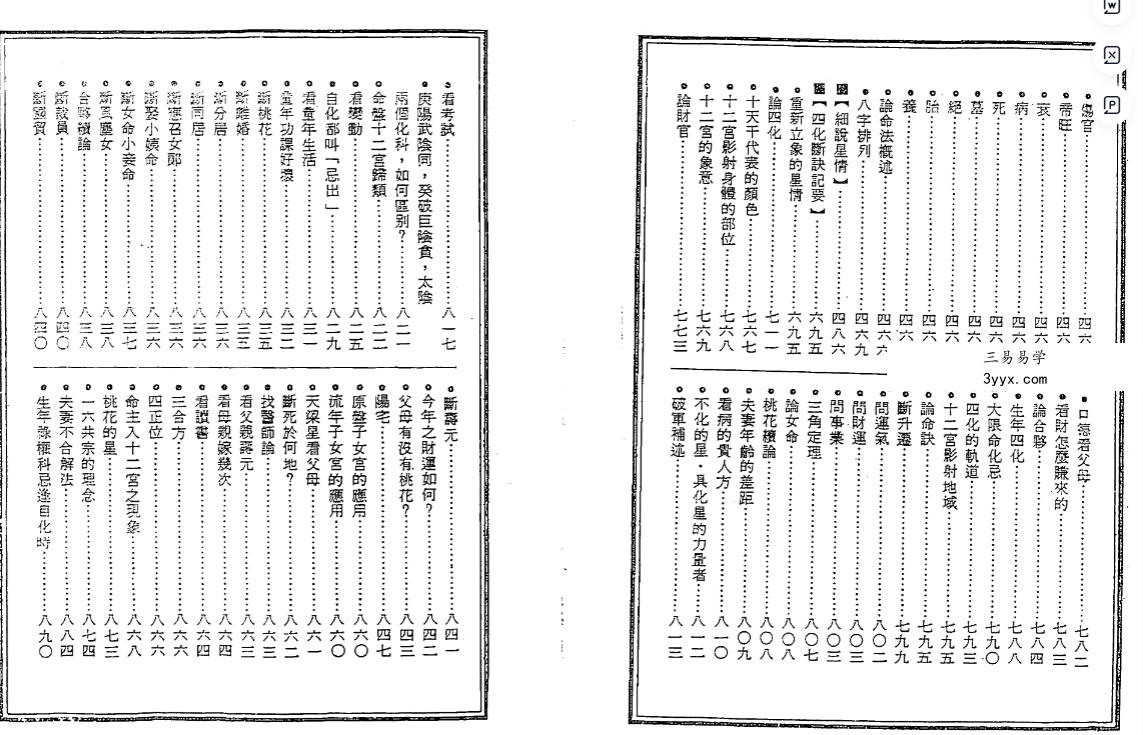 傷官 四六
帝旺 四六
衰 四六
病 四六
死 四六
墓 四六
絕 四六
胎 四六
養 四六
論命法概述 四六六
八字排列 四六九
【細說星情】 四八六
【四化斷訣記要】 六九五
重新立象的星情 六九五
論四化 七一一
十天干代表的顏色 七六七
十二宮影射身體的部位 七六八
十二宮的象意 七六九
論財官 七七三
三易易学
3yyx.com
口德看父母 七八二
看財怎麼賺來的 七八三
論合夥 七八四
生年四化 七八八
大限命化忌 七九〇
四化的軌道 七九三
十二宮影射地域 七九五
論命訣 七九五
斷升遷 七九九
問運氣 八〇二
問財運 八〇三
問事業 八〇三
三角定理 八〇七
論女命 八〇八
桃花續論 八〇八
夫妻年齡的差距 八〇九
看病的貴人方 八一〇
不化的星,具化星的力量者 八一二
破軍補述 八一三
看考試 八一七
庚陽武陰同,癸破巨陰貪,太陰
兩個化科,如何區別? 八二一
命盤十二宮歸類 八二二
看變動 八二五
自化都叫「忌出」 八二九
看童年生活 八三一
童年功課好壞 八三二
斷桃花 八三五
斷離婚 八三五
斷分居 八三六
斷同居 八三六
斷應召女郎 八三六
斷娶小姨命 八三六
斷女命小妾命 八三七
斷風塵女 八三八
合夥續論 八三八
斷議員 八四〇
斷國貿 八四〇
斷壽元 八四一
今年之財運如何? 八四二
父母有沒有桃花? 八四三
陽宅 八四七
原盤子女宮的應用 八六〇
流年子女宮的應用 八六〇
天梁星看父母 八六一
斷死於何地? 八六二
找醫師論 八六三
看父親壽元 八六三
看母親嫁幾次 八六四
看讀書 八六四
三合方 八六六
四正位 八六六
命主入十二宮之現象 八六八
桃花的星 八七三
一六共宗的理念 八七四
夫妻不合解法 八八四
生年祿權科忌逢自化時 八九〇
W
X
P